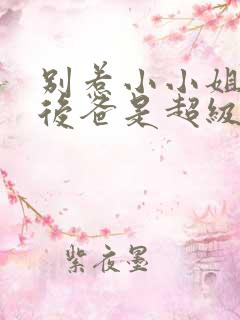 别惹小小姐
後爸是超級
紫夜墨